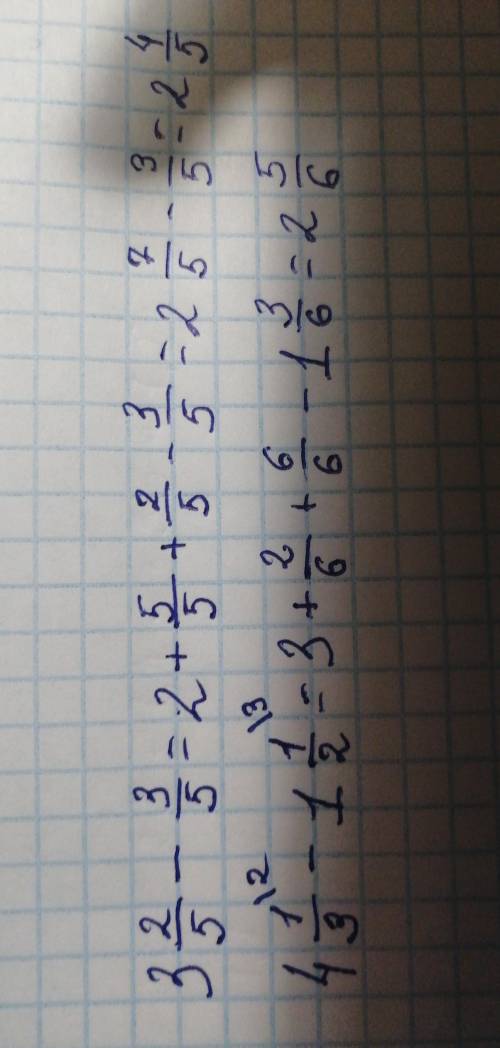 3 2/5 - 3/5 = 2 + 5/5 + 2/5 - 3/5 = 2 7/5 - 3/5 = 2 4/5
4 1/3 \2 - 1 1/2 \3 = 3 + 2/6 + 6/6 - 1 3/6 = 2 5/6